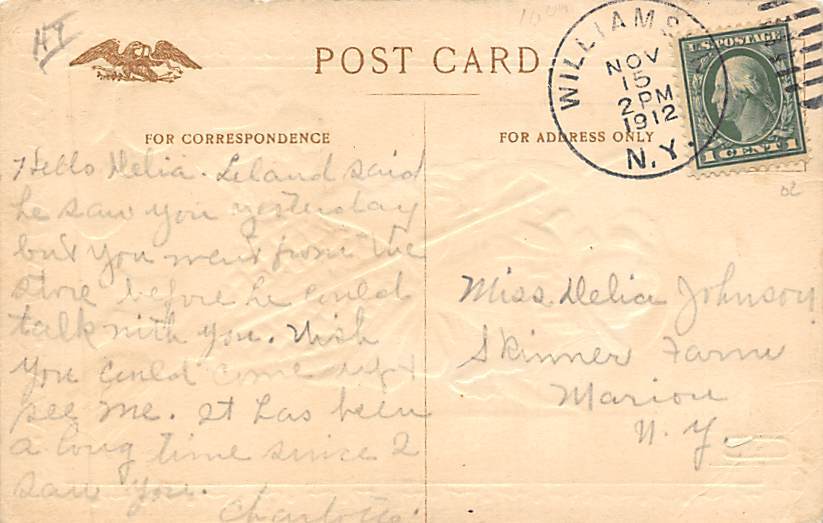 HI
POST CARD
WILLIAMS
NOV
15
2 PM
1912
N.Y.
U.S. POSTAGE
1 CENT 1
FOR CORRESPONDENCE
FOR ADDRESS ONLY
Hello Delia. Leland said
he saw you yesterday
but you went from the
store before he could
talk with you. Wish
you could come up &
see me. It has been
a long time since I
saw you.
Charlotte.
Miss. Delia Johnson
Skinner Farm
Marion
N.Y.